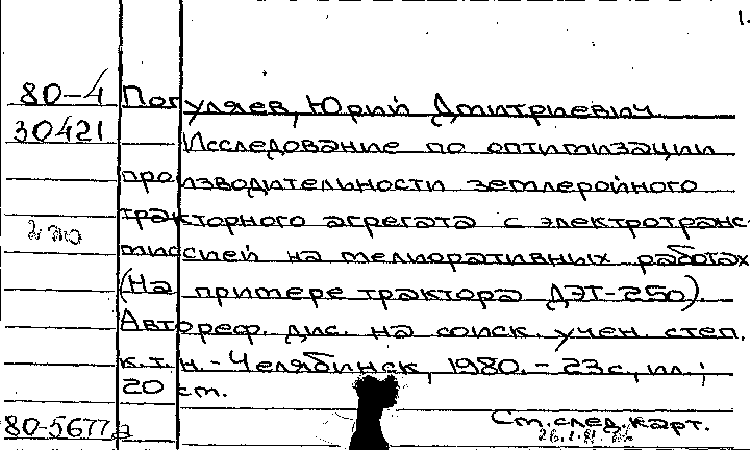 1.
80-4 Погуляев, Юрий Дмитриевич
30421 Исследование по оптимизации
производительности землеройного
тракторного агрегата с электротранс-
миссией на мелиоративных работах
(На примере трактора ДЭТ-250).
Автореф. дис. на соиск. учен. степ.
к.т.н. - Челябинск, 1980. - 23 с., ил.;
20 см.
80-5677а См. след. карт.